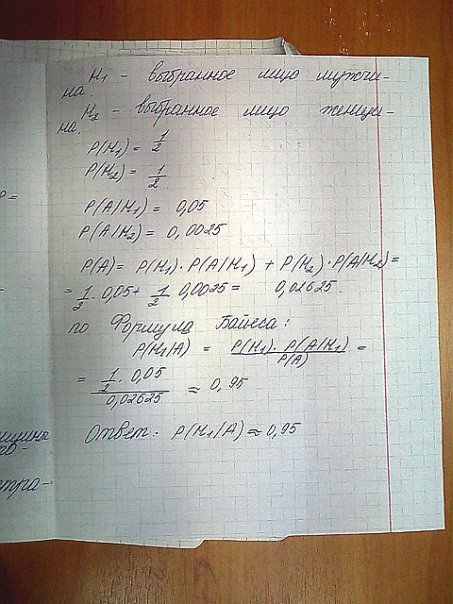 H₁ - выбранное лицо мужчи-
на.
H₂ - выбранное лицо женщи-
на.
P(H₁) = 1/2
P(H₂) = 1/2
P(A/H₁) = 0,05
P(A/H₂) = 0,0025
P(A) = P(H₁)·P(A/H₁) + P(H₂)·P(A/H₂) =
= 1/2 · 0,05 + 1/2 0,0025 = 0,02625.
по Формула Байеса:
P(H₁/A) = P(H₁)· P(A/H₁) / P(A) =
= 1/2 · 0,05 / 0,02625 ≈ 0,95
Ответ: P(H₁/A) ≈ 0,95